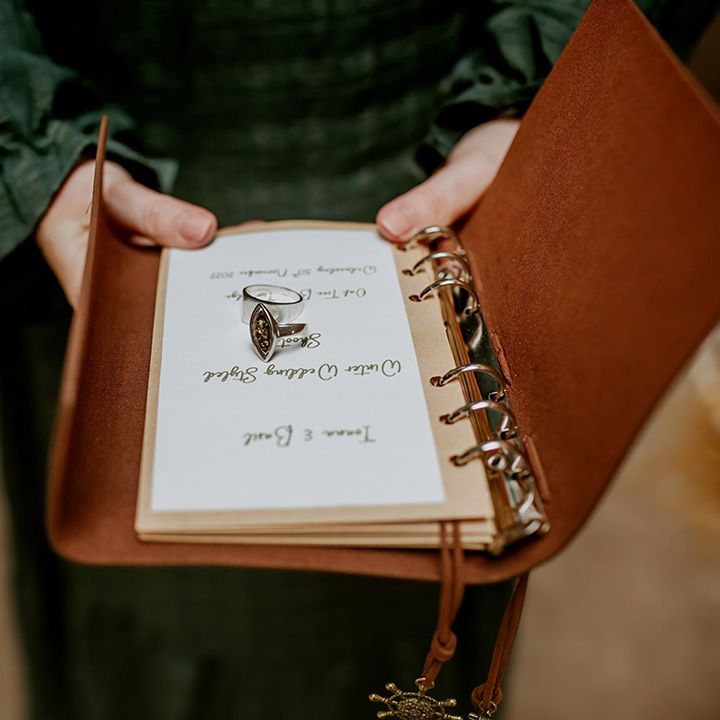 Ioana & Basil
Winter Wedding Styled
Shoot
Oak Tree
Wednesday 30th November 2022